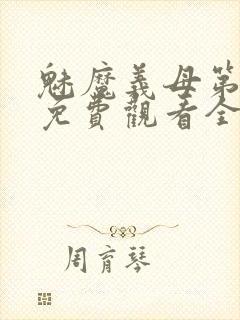 魅魔義母第
免費觀看全
周育琴